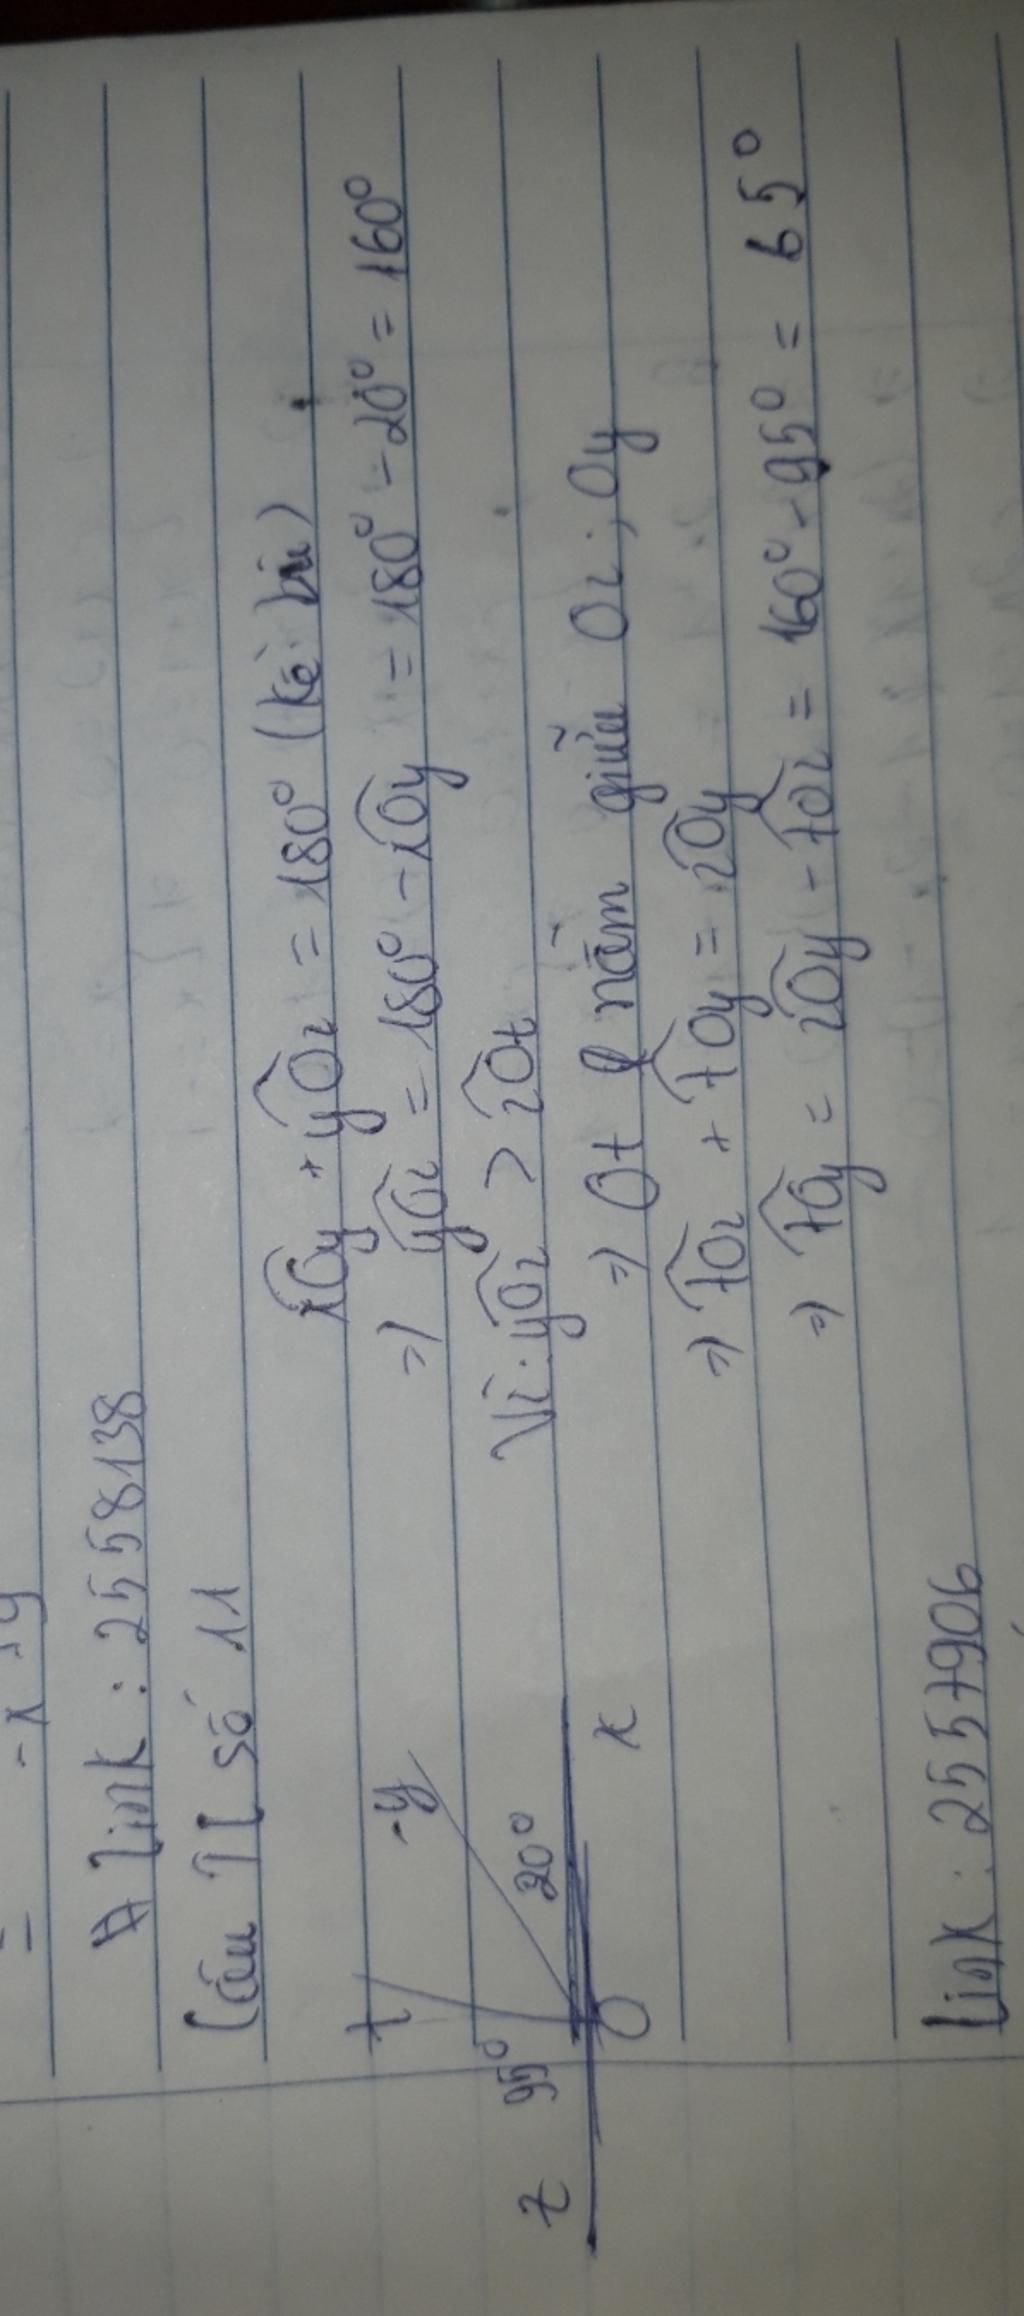 = - x 19
# link: 2558138
Câu TL số 11
xOy + yOz = 180° (kề bù)
=> yOz = 180° - xOy = 180° - 20° = 160°
Vì: yOz > zOt
=> Ot nằm giữa Oz; Oy
=> tOz + tOy = zOy
=> tOy = zOy - tOz = 160° - 95° = 65°
t
y
95°
20°
z
O
x
link: 2557906